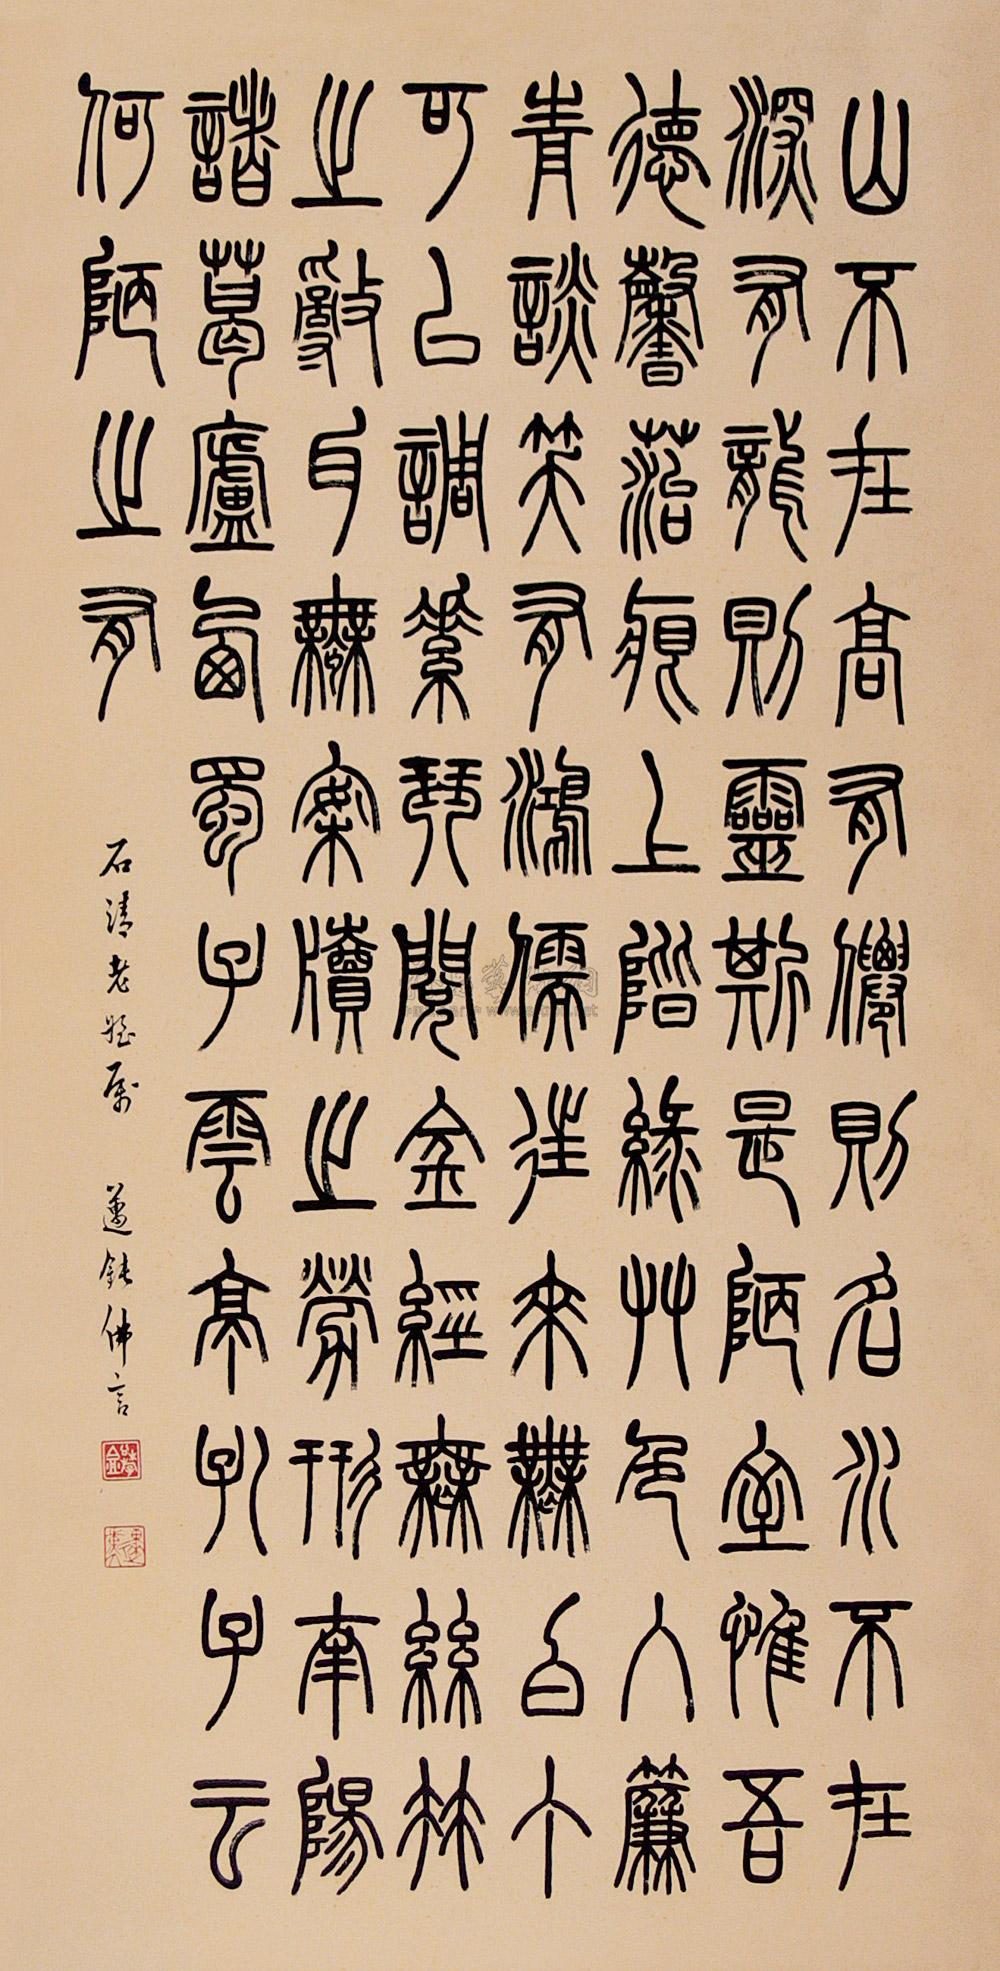 山不在高有僊則名水不在
深有龍則靈斯是陋室惟吾
德馨菭痕上階綠艸色入簾
青談笑有鴻儒往來無白丁
可㠯調素琴閱金經無絲竹
之亂耳無案牘之勞形南陽
諸葛廬西蜀子雲亭孔子云
何陋之有
石清老姪屬 邁鈍佛言